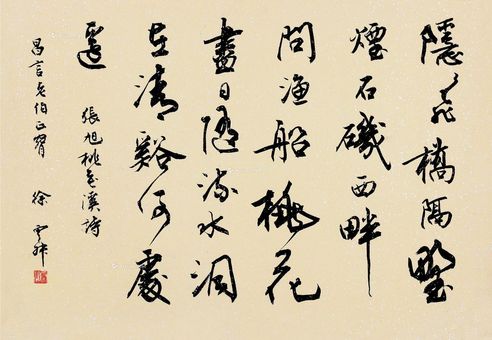 隱〻飛橋隔墅
煙石磯西畔
問漁船桃花
盡日隨流水洞
在清谿何處
邊
張旭桃花溪詩
昌言老伯正習 徐雲叔